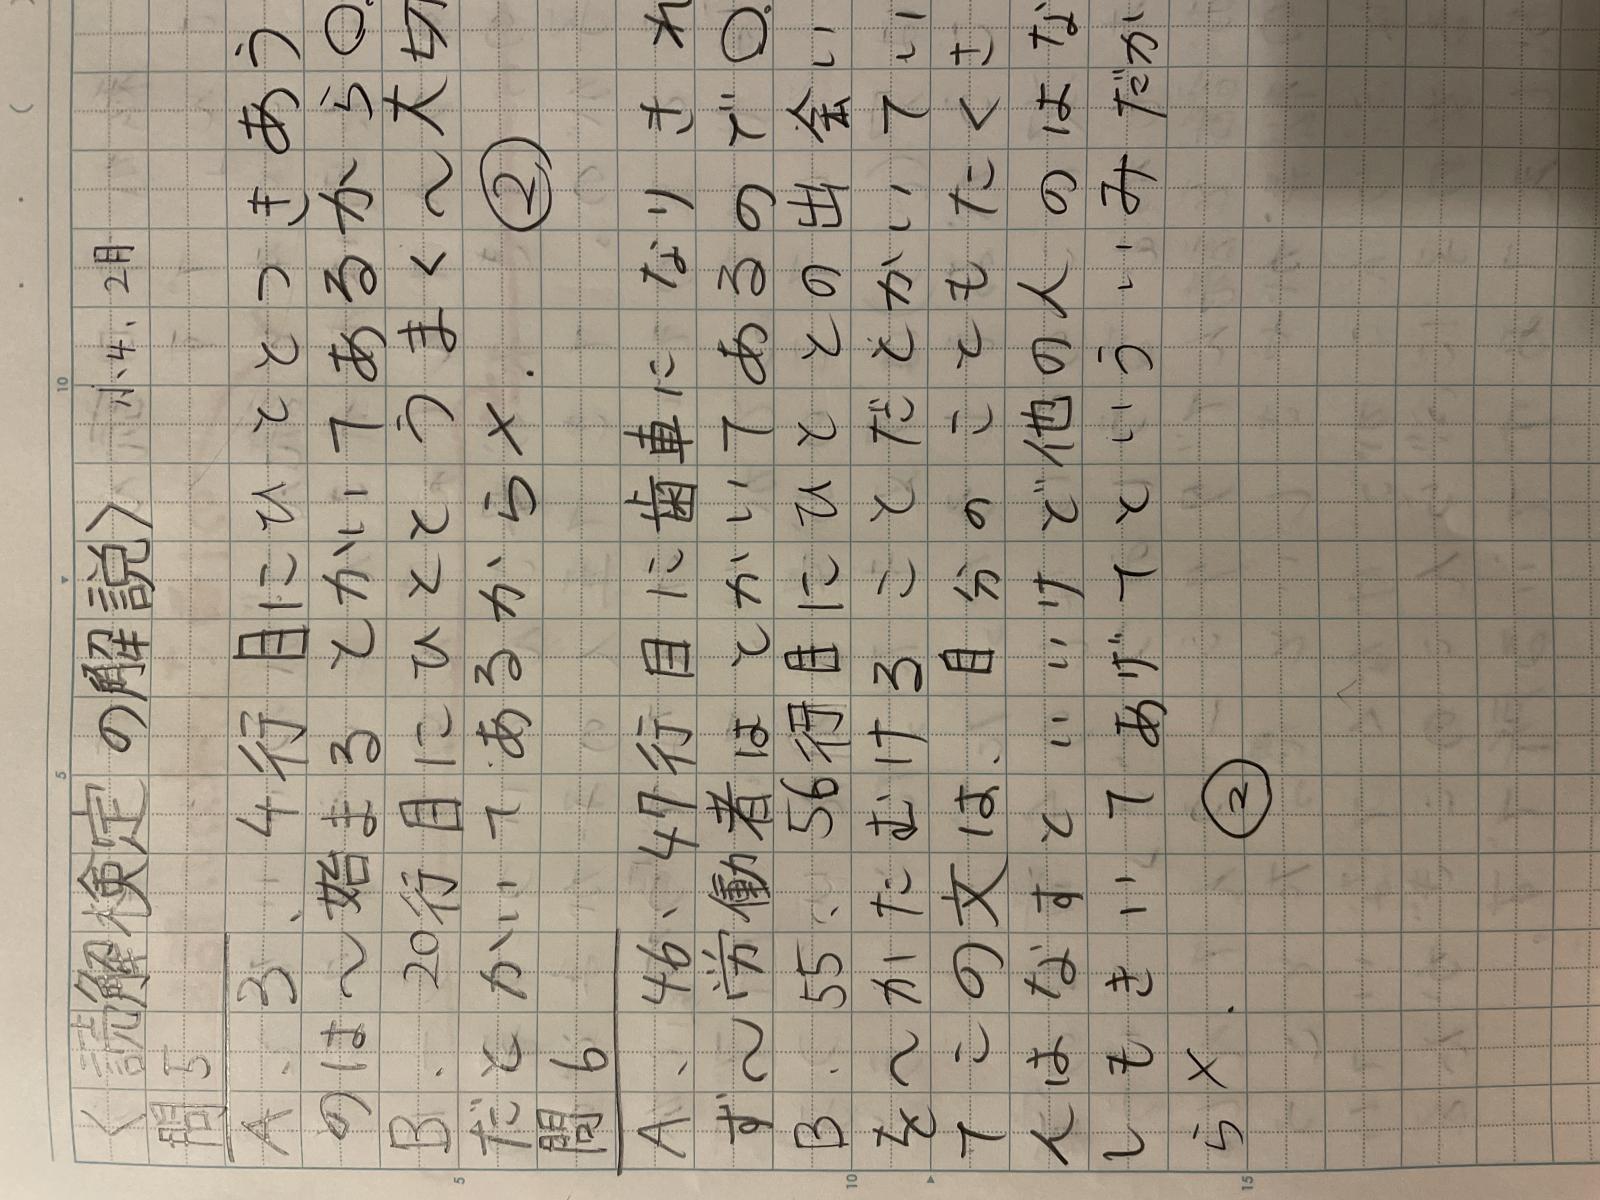 <読解検定の解説> 小4、2月
問5
A、3、4行目にひととつきあう
のは〜始まるとかいてあるから○。
B、20行目にひととうまく〜大切
だとかいてあるから×。②
問6
A、46、47行目に歯車になりきれ
ず〜労働者はとかいてあるので○。
B、55、56行目にひととの出会い
を〜かたむけることだとかいてい
てこの文は、自分のこともたくさ
んはなすといいけど他の人のはな
しもきいてあげてといういみだか
ら×。②
5
10
5
10
15